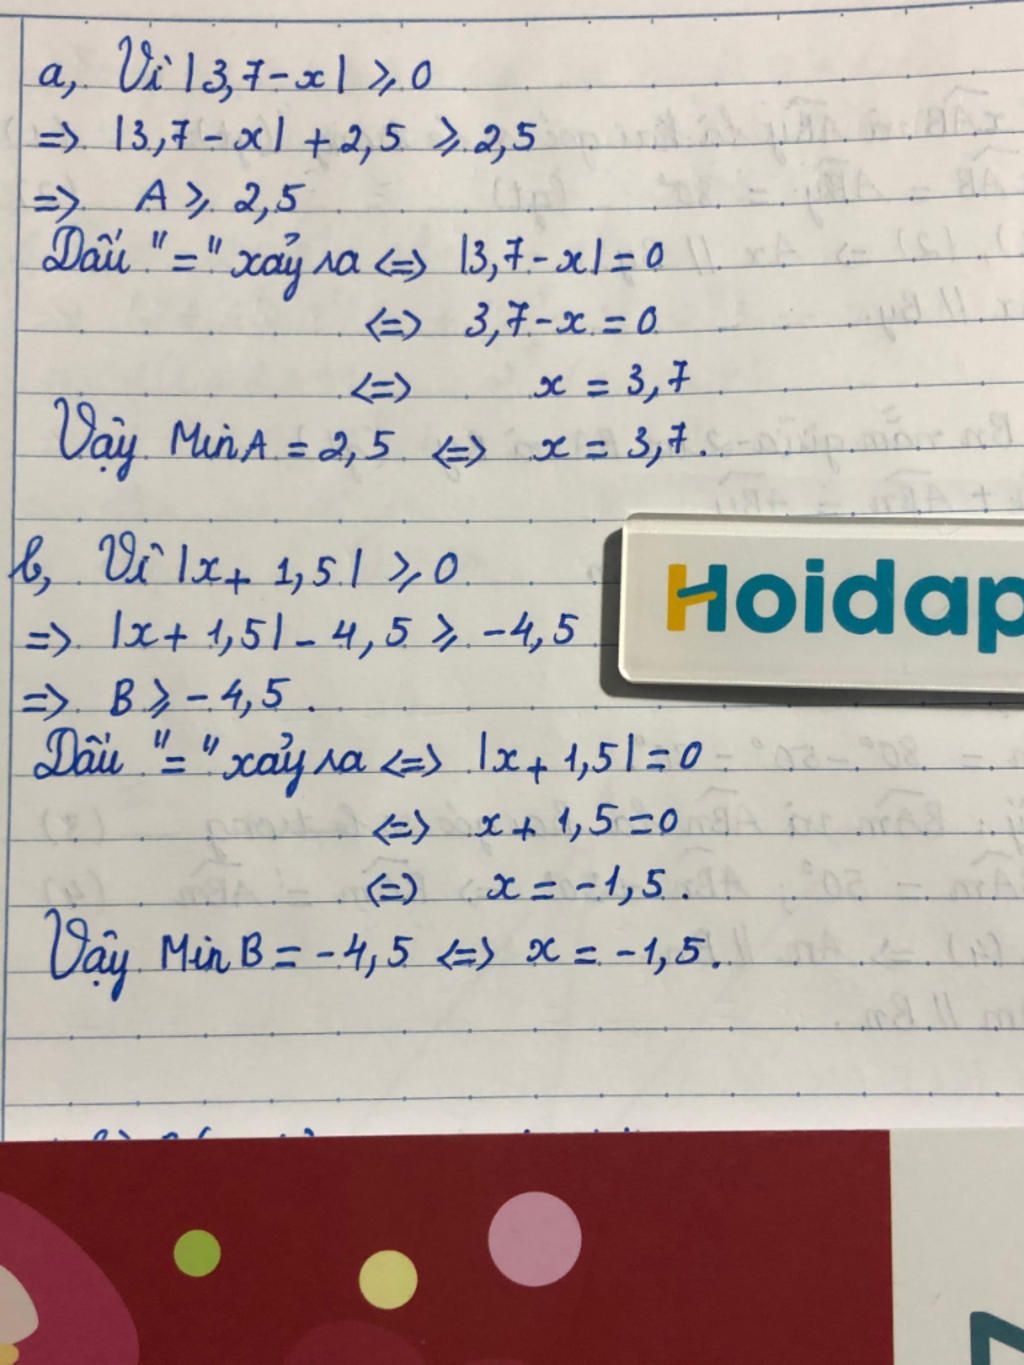 a, Vì |3,7-x| ⩾ 0
=> |3,7-x| + 2,5 ⩾ 2,5
=> A ⩾ 2,5
Dấu "=" xảy ra <=> |3,7-x| = 0
<=> 3,7-x = 0
<=> x = 3,7
Vậy Min A = 2,5 <=> x = 3,7.
b, Vì |x + 1,5| ⩾ 0
=> |x + 1,5| - 4,5 ⩾ -4,5
=> B ⩾ -4,5.
Dấu "=" xảy ra <=> |x + 1,5| = 0
<=> x + 1,5 = 0
<=> x = -1,5.
Vậy Min B = -4,5 <=> x = -1,5.
Hoidap